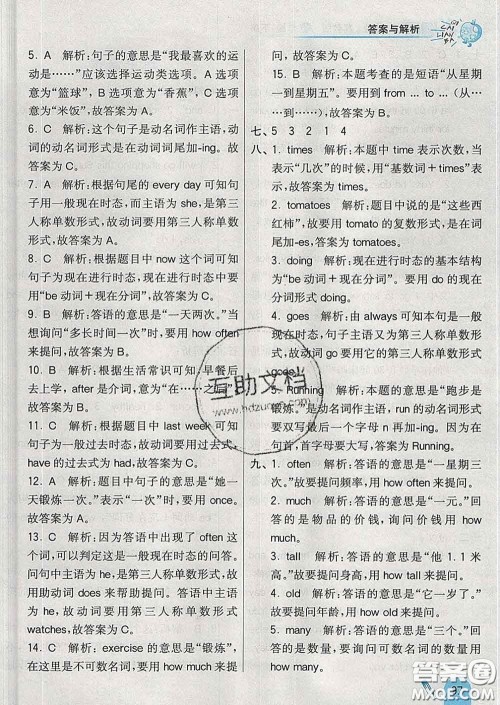 答案与解析
5. A 解析:句子的意思是“我最喜欢的运
动是……”应该选择运动类选项。A 选项
意为“篮球”，B 选项意为“香蕉”，C 选项
意为“米饭”，故答案为 A。
6. C 解析:这个句子是动名词作主语,动
词的动名词形式是在动词词尾加-ing。故
答案为 C。
7. A 解析:根据句尾的 every day 可知句
子用一般现在时态,而主语为 she,是第三
人称单数形式,故动词要用第三人称单数
形式,故答案为 A。
8. C 解析:根据题目中 now 这个词可知
句子为现在进行时态,现在进行时态中要
用“be 动词＋现在分词”,故答案为 C。
9. B 解析:答语的意思是“一天两次。”当
想询问“多长时间一次”时,要用 how often
来提问,故答案为 B。
10. B 解析:根据生活常识可知,早餐后
去上学,after 是介词,意为“在……之后”,
故答案为 B。
11. C 解析:根据题目中 last week 可知
句子为一般过去时态,动词要用过去式,
have 的过去式为 had,故答案为 C。
12. A 解析:题目中句子的意思是“她一
天锻炼一次。”表示“一次”时,要用 once。
故答案为 A。
13. C 解析:因为答语中出现了 often 这
个词,可以判断这是一般现在时态的问答。
问句中主语为 he,是第三人称单数形式,
故用助动词 does 来帮助提问。答语中主
语为 he,故动词要用第三人称单数形式
watches,故答案为 C。
14. C 解析:exercise 的意思是“锻炼”,
在这里是不可数名词,故要用 how much 来提
15. B 解析:本题考查的是短语“从星期
一到星期五”。要用到 from … to …(从……
到……),故答案为 B。
七、5 3 2 1 4
八、1. times 解析:本题中 time 表示次数,当
表示“几次”的时候,用“基数词＋times”表
示,故答案为 times。
2. tomatoes 解析:题目中说的是“这些西
红柿”,故要用 tomato 的复数形式,是在词
尾加-es,故答案为 tomatoes。
3. doing 解析:现在进行时态的主要结
构为“be 动词＋现在分词”。要用 do 的现在
分词形式 doing。
4. goes 解析:由 always 可知本句为一
般现在时态。主语为第三人称单数形式,
故动词 go 要用它的第三人称单数形式
goes。
5. Running 解析:本题的意思是“跑步是
锻炼。”是动名词作主语,run 的动名词形式
要双写最后一个字母 n 再加-ing。又因为
在句首,首字母要大写,故答案为 Running。
九、1. often 解析:答语的意思是“一星期三
次。”故要提问频率,用 how often 来提问。
2. much 解析:答语的意思是“一元。”回
答的是物品的价钱,故询问价钱用 how
much。
3. tall 解析:答语的意思是“他 1.1 米
高。”故要提问身高,用 how tall 来提问。
4. old 解析:答语的意思是“它一岁了。”故
要提问年龄,用 how old 来提问。
5. many 解析:答语的意思是“三个。”回
答的是数量,故要用询问可数名词的数量用
how many 来提问。
互助文档